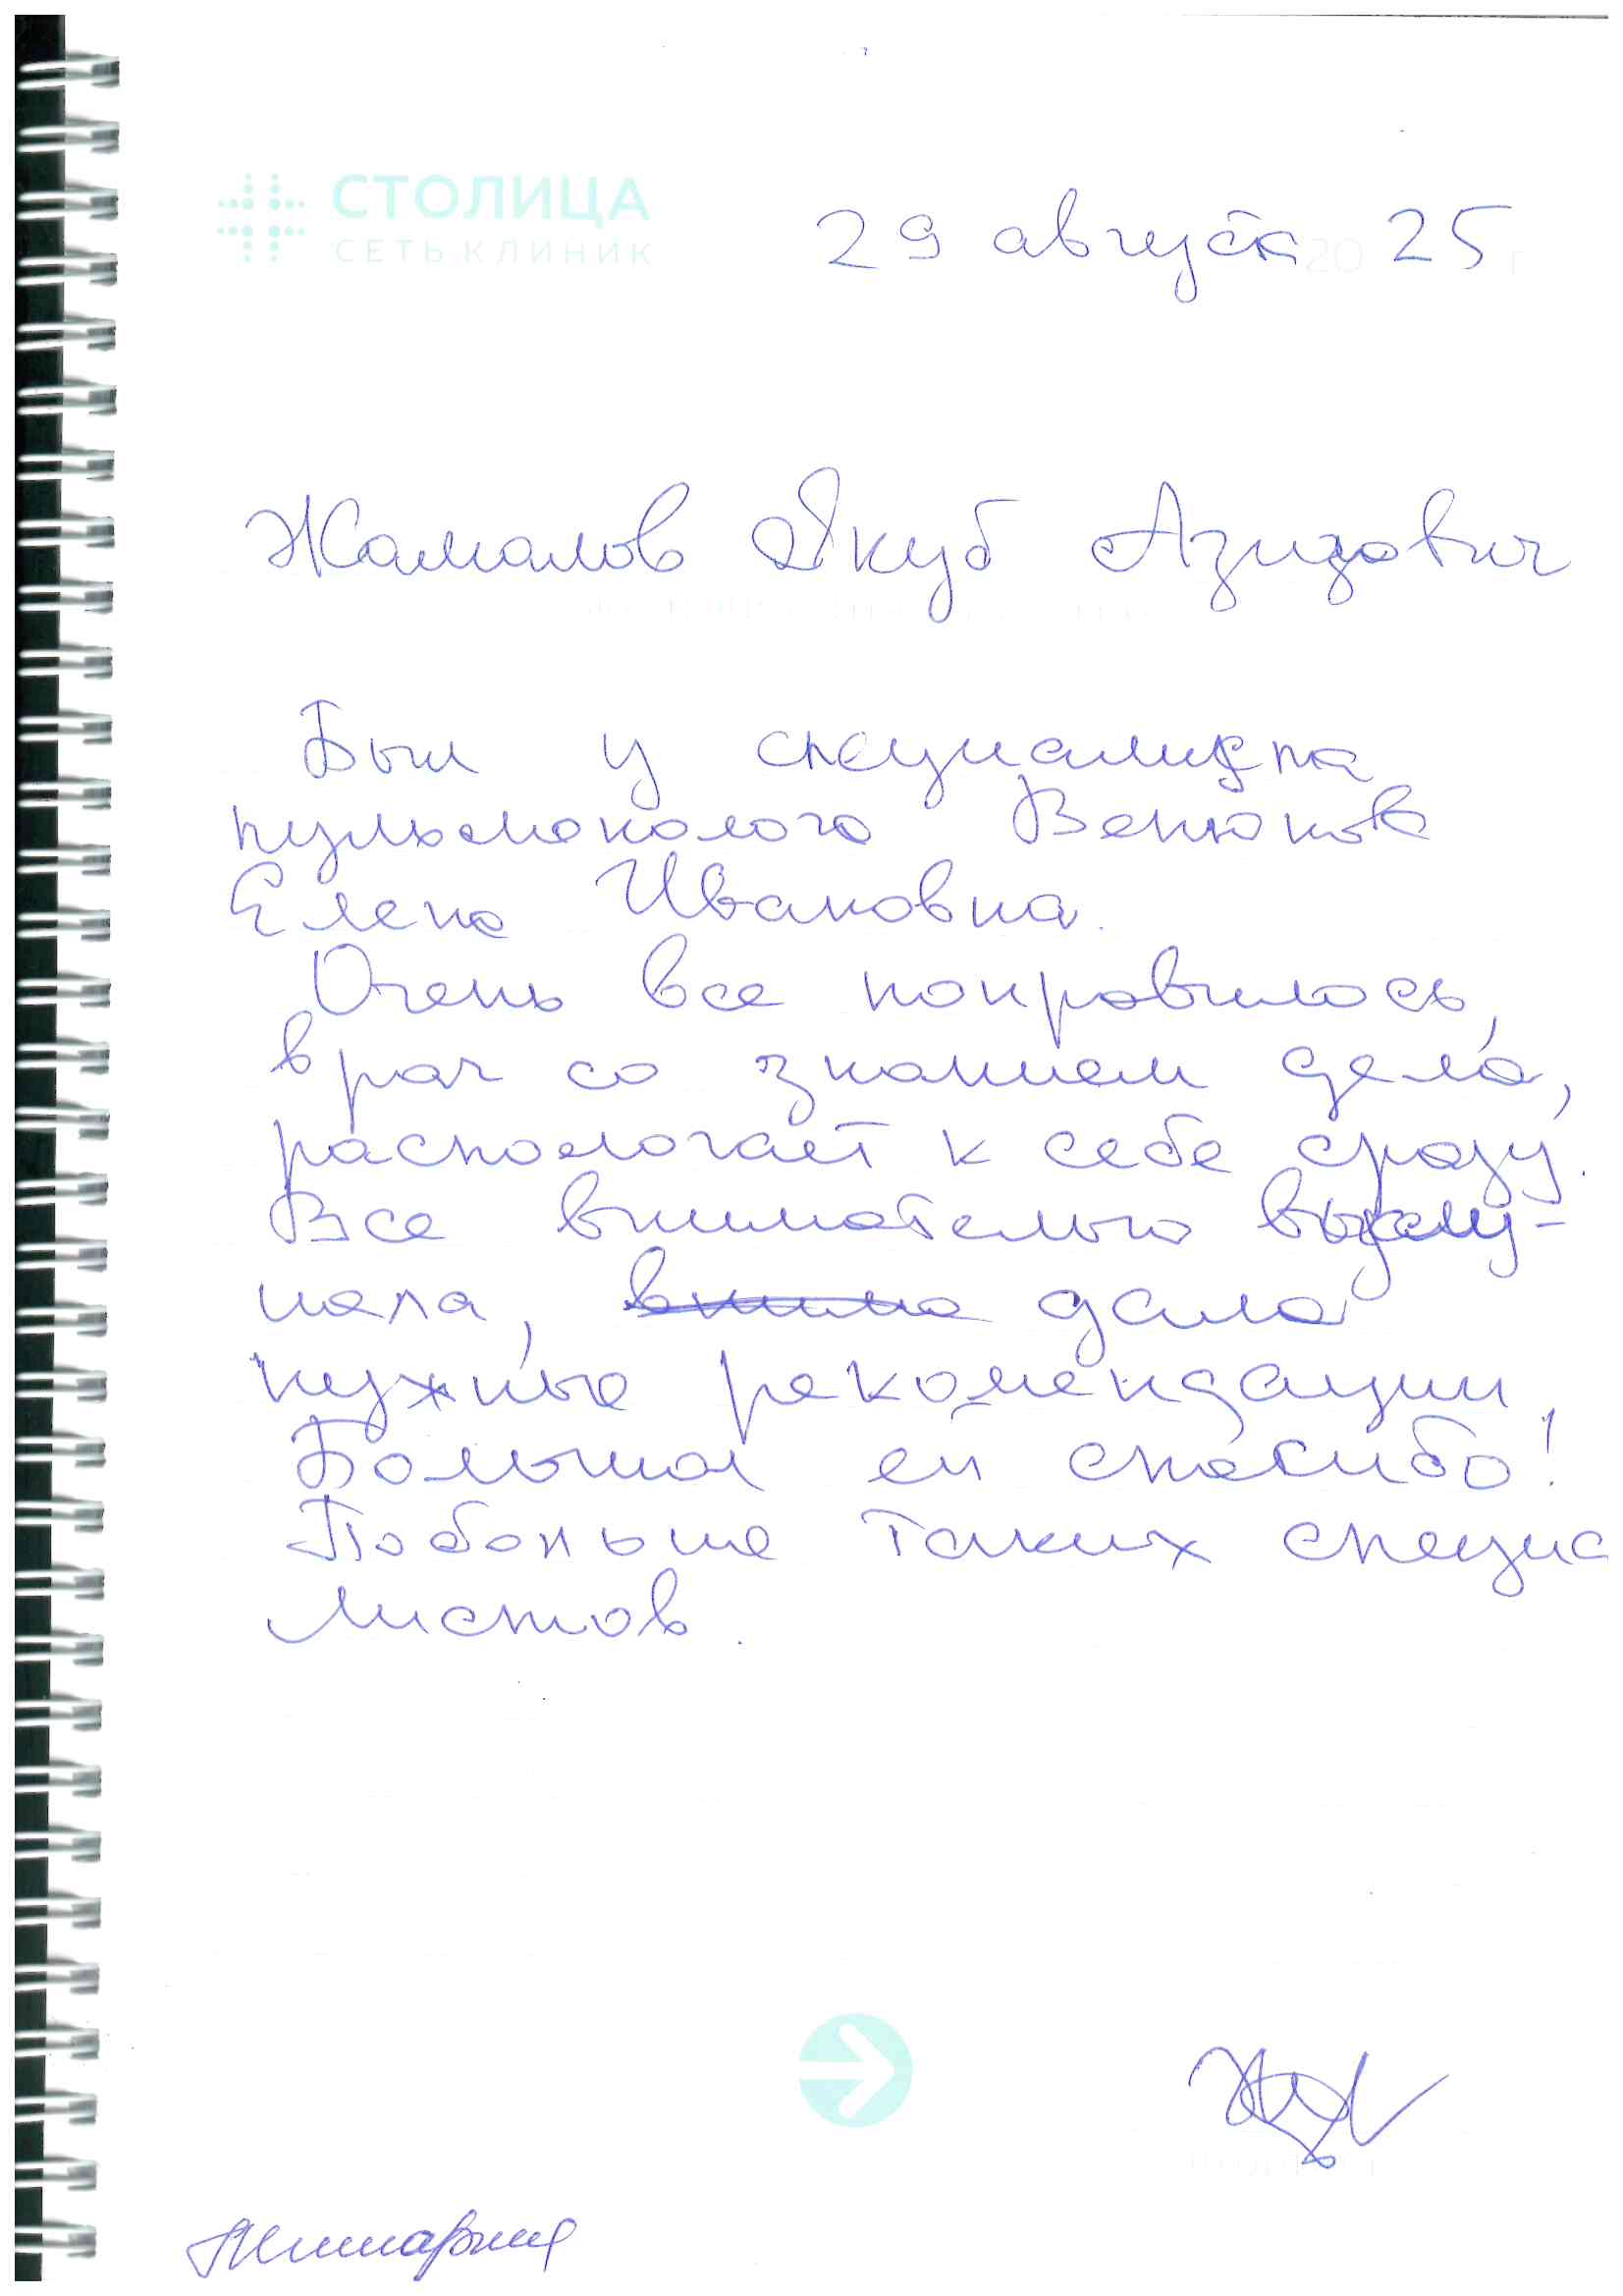 СТОЛИЦА
СЕТЬ КЛИНИК
29 августа 2025 г
Жамалов Якуб Азизович
Был у специалиста
пульмонолога Венюкова
Елена Ивановна.
Очень все понравилось,
врач со знанием дела,
распологает к себе сразу.
Все внимательно выслу-
шала, дала
нужные рекомендации
Большое ей спасибо!
Побольше таких специа
листов.